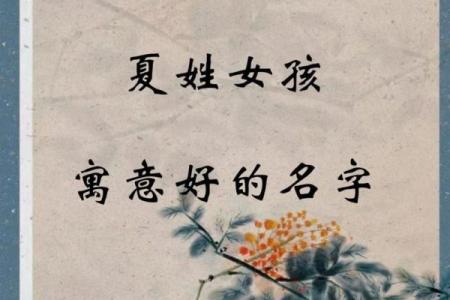 夏姓女孩
寓意好的名字